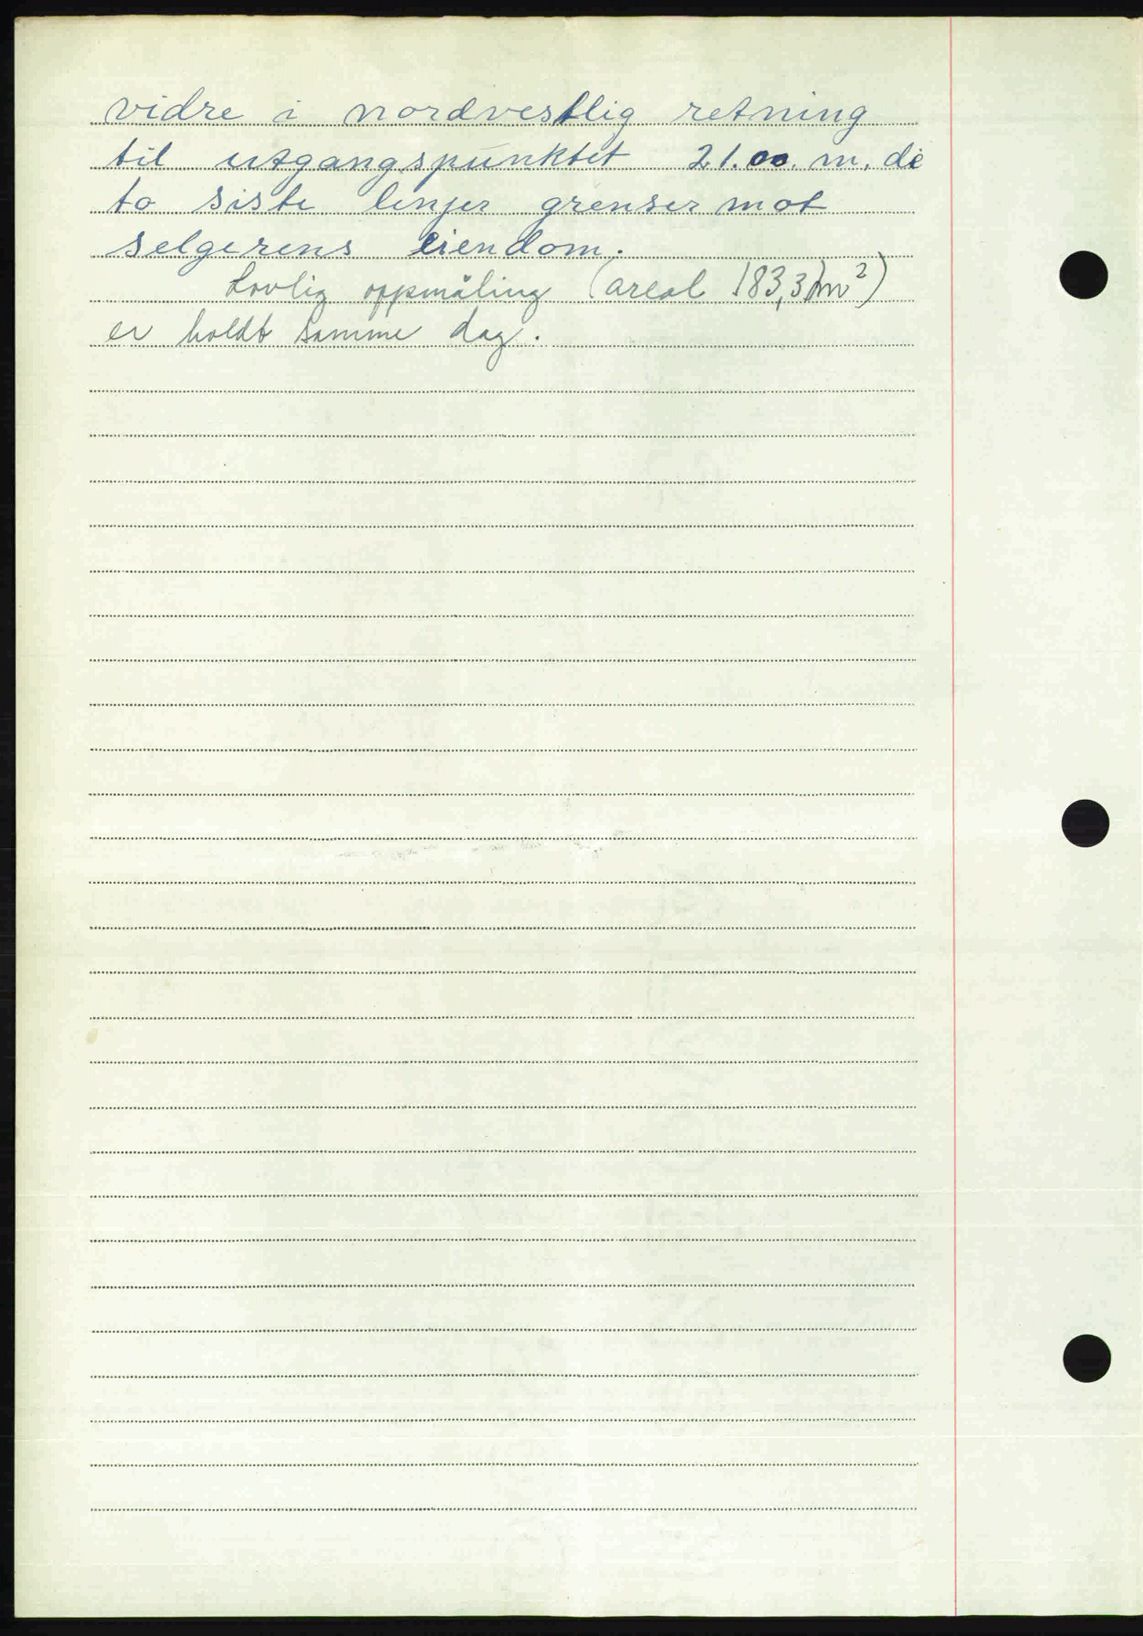 vidre i nordvestlig retning
til utgangspunktet 21.00 m. de
to siste linjer grenser mot
selgerens eiendom.
Lovlig oppmåling (areal 183,3 m²)
er holdt samme dag.